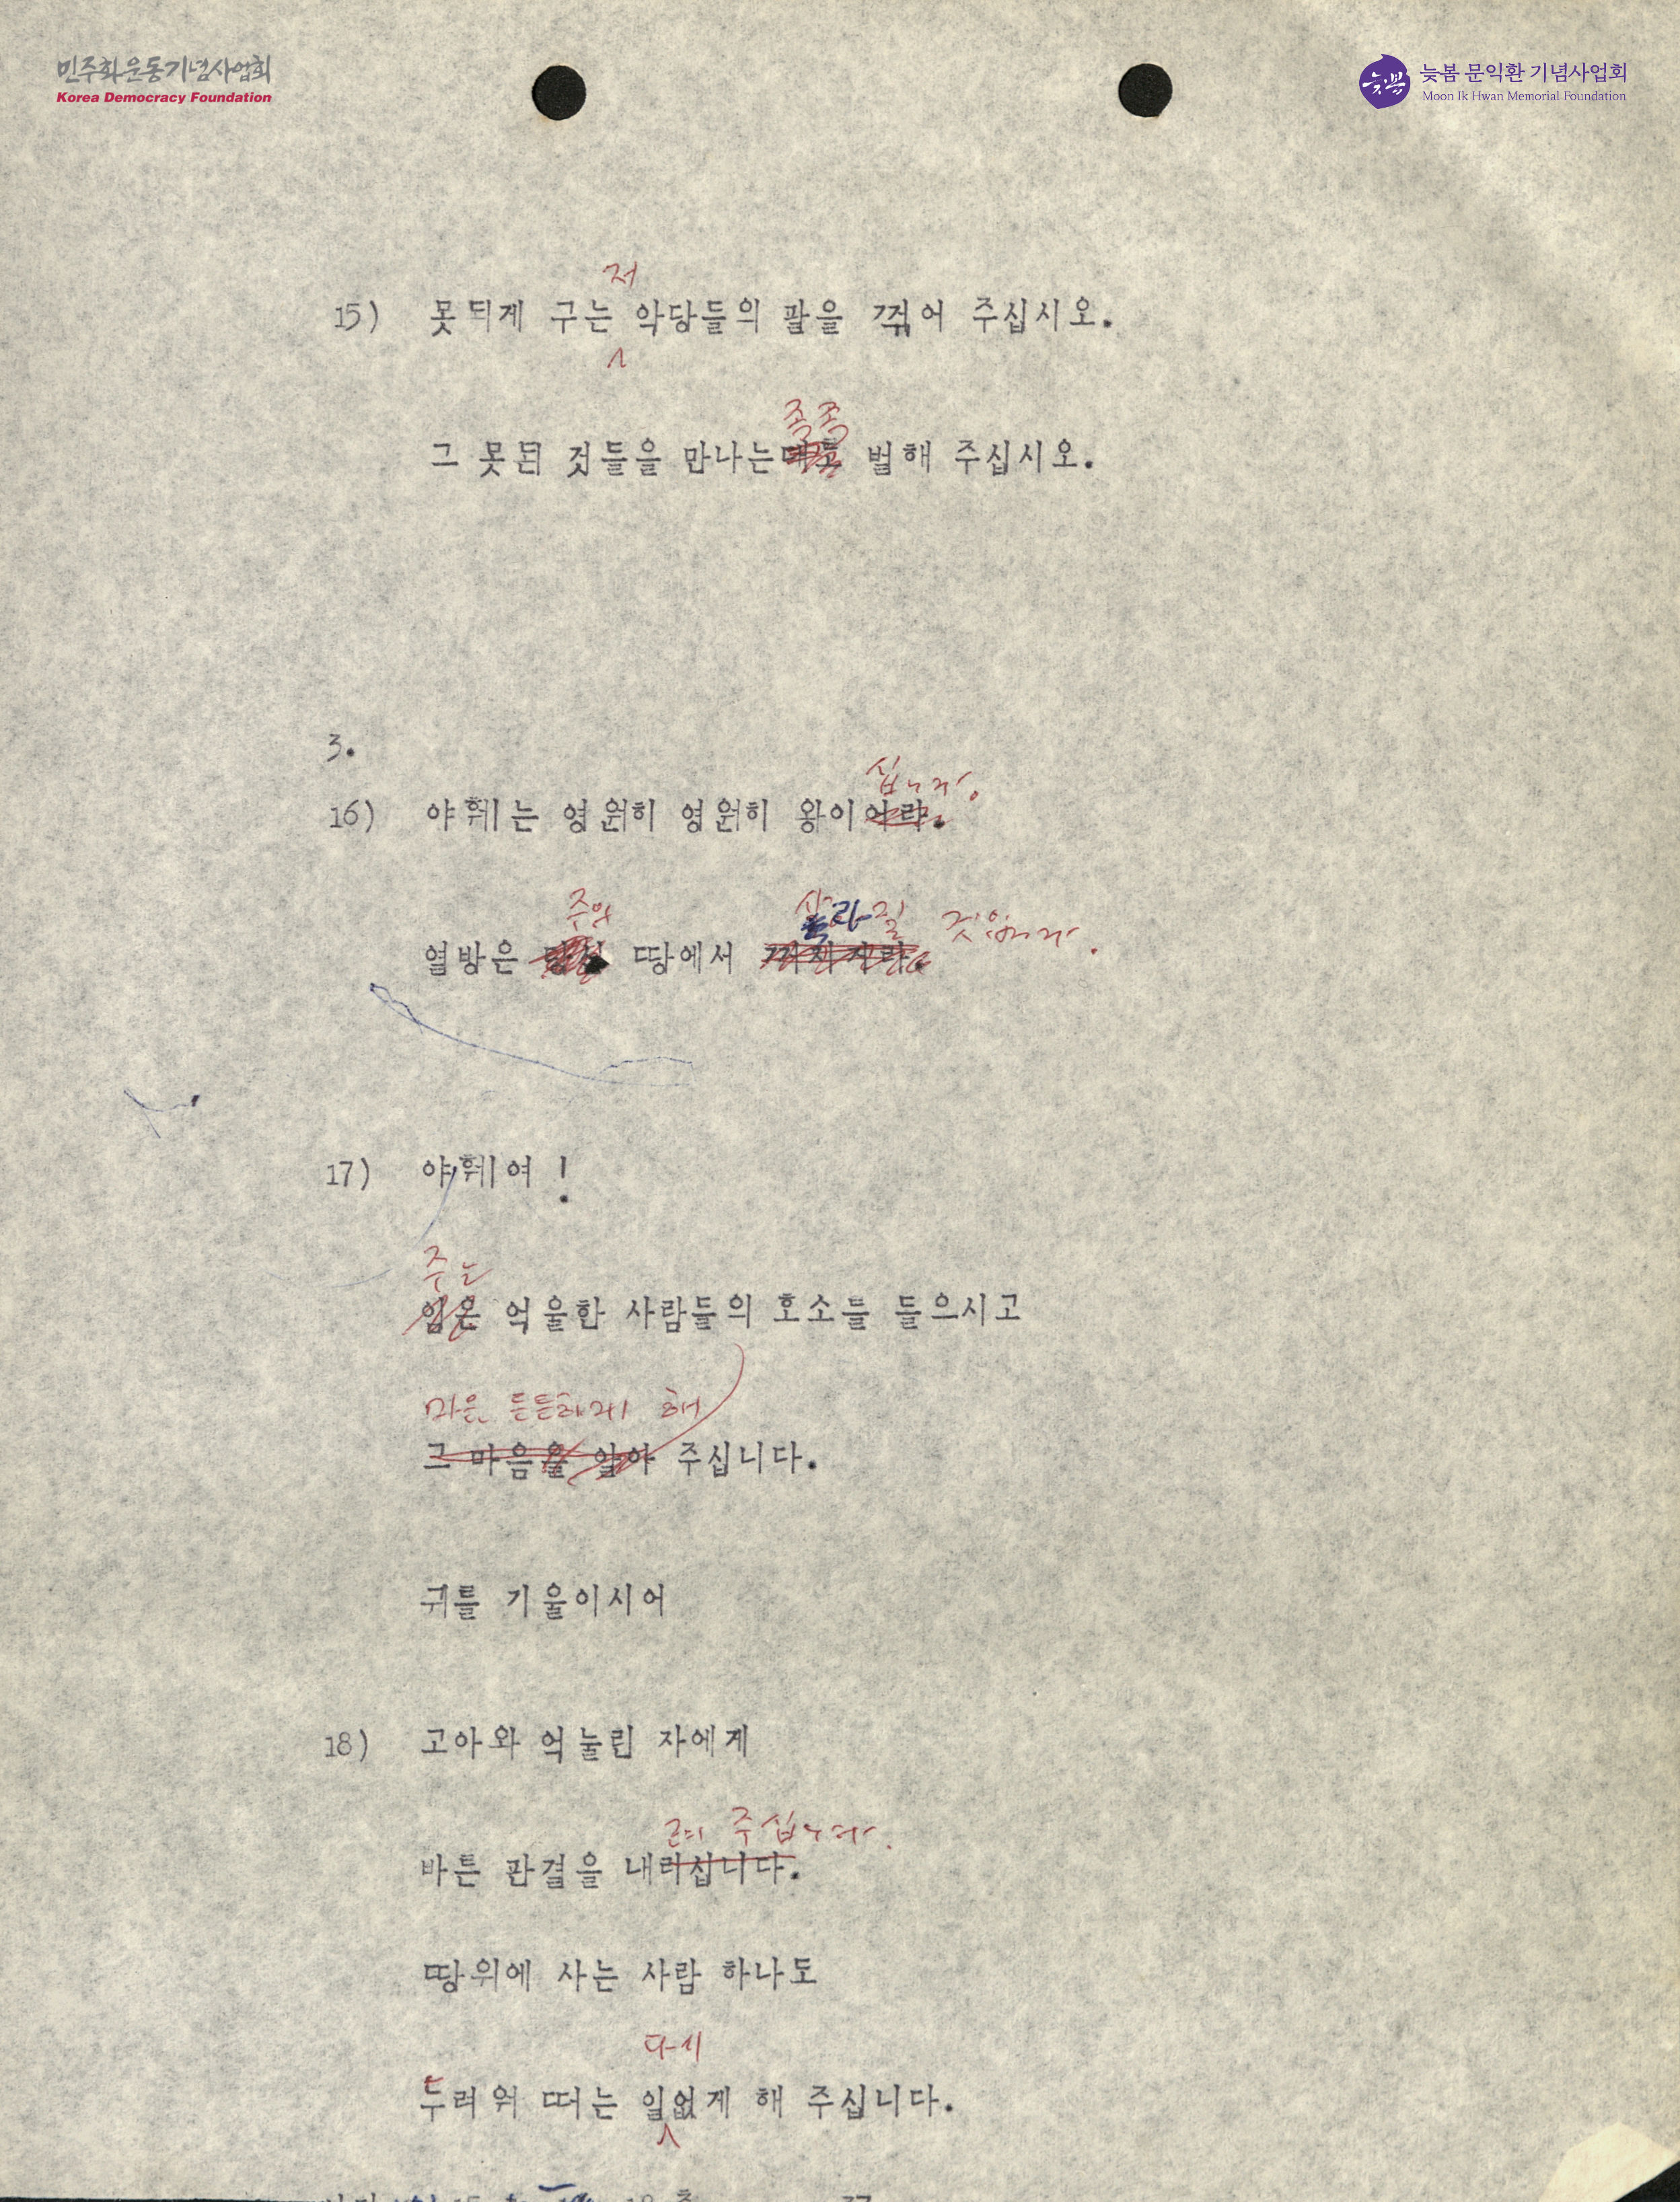 민주화운동기념사업회
Korea Democracy Foundation
늦봄
늦봄 문익환 기념사업회
Moon Ik Hwan Memorial Foundation
저
15) 못되게 구는 악당들의 팔을 꺾어 주십시오.
족족
그 못된 것들을 만나는대로 벌해 주십시오.
3.
십니다.
16) 야훼는 영원히 영원히 왕이어라.
주의
라질 것입니다.
열방은 땅에서 꺼지거라.
17) 야훼여 !
주는
임은 억울한 사람들의 호소를 들으시고
마음 든든하게 해
그 마음을 알아 주십니다.
귀를 기울이시어
18) 고아와 억눌린 자에게
려 주십니다.
바른 판결을 내리십니다.
땅위에 사는 사람 하나도
다시
두려워 떠는 일없게 해 주십니다.